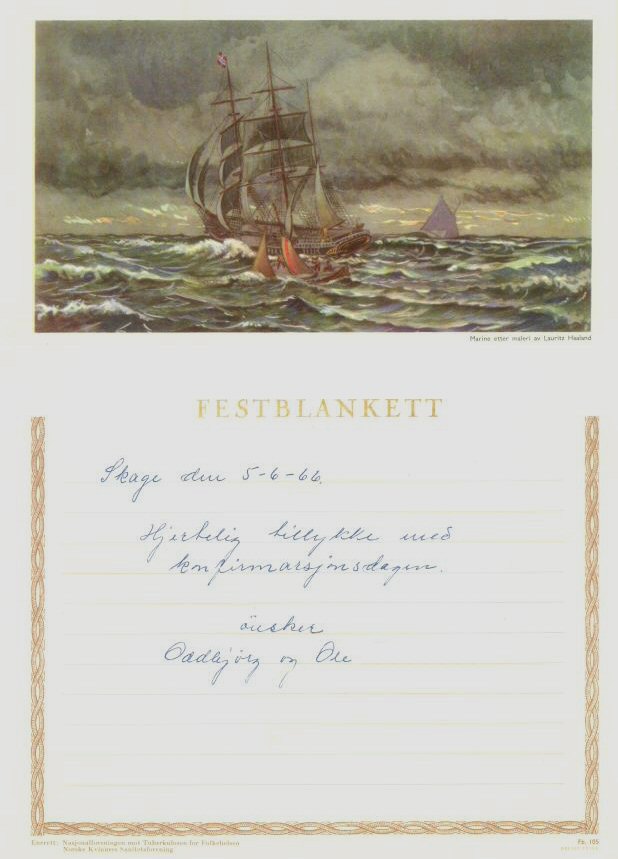 Marine etter maleri av Lauritz Haaland
FESTBLANKETT
Skage den 5-6-66.
Hjertelig tillykke med
konfirmarsjonsdagen.
önsker
Oddbjörg og Ole
Enerett: Nasjonalforeningen mot Tuberkulosen for Folkehelsen
Norske Kvinners Sanitetsforening
Fb. 105